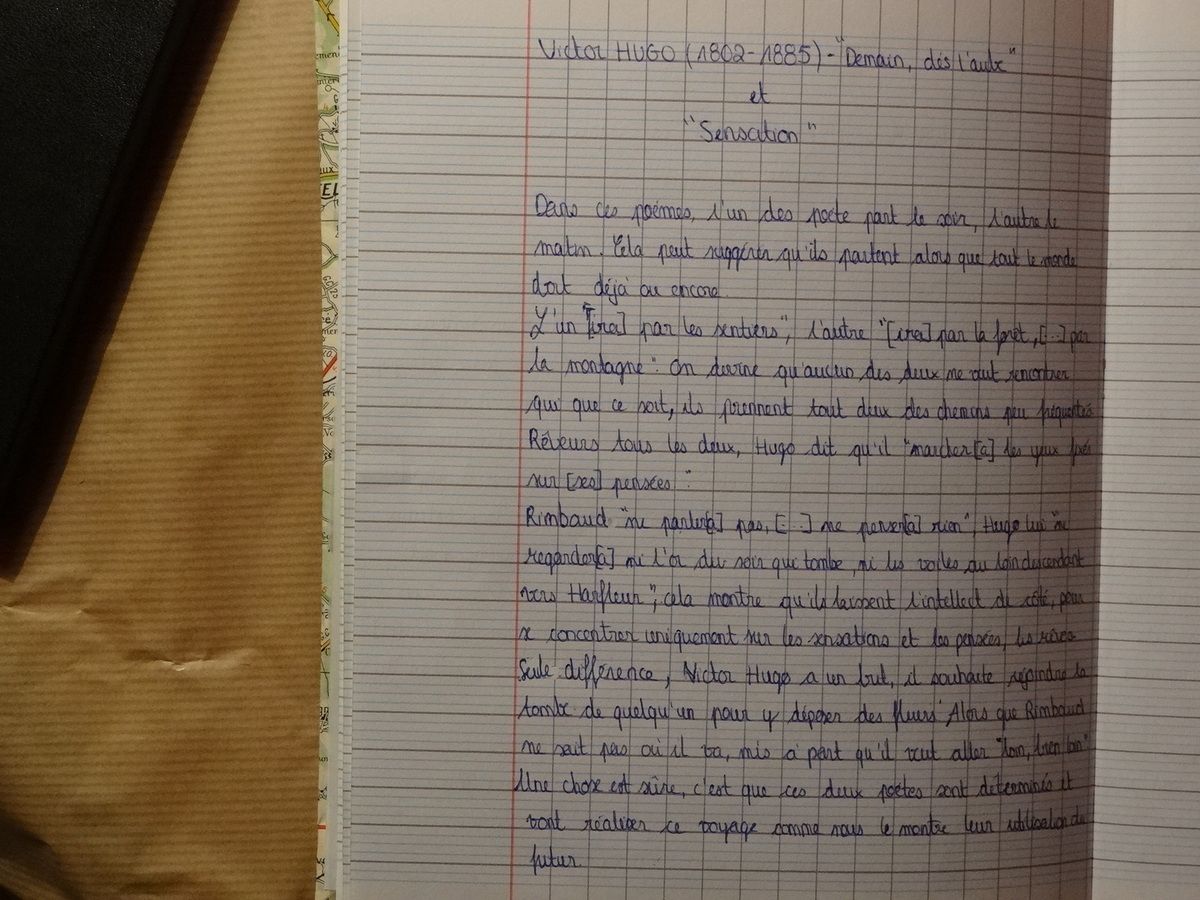 Victor HUGO (1802-1885) - "Demain, dès l'aube"
et
"Sensation"
Dans ces poèmes, l'un des poète part le soir, l'autre le
matin. Cela peut suggérer qu'ils partent alors que tout le monde
dort déjà ou encore.
L'un "[ira] par les sentiers", l'autre "[ira] par la forêt, [...] par
la montagne". On devine qu'aucun des deux ne veut rencontrer
qui que ce soit, ils prennent tout deux des chemins peu fréquentés
Rêveurs tous les deux, Hugo dit qu'il "marcher[a] les yeux fixés
sur [ses] pensées".
Rimbaud "ne parler[a] pas, [...] ne penser[a] rien", Hugo lui "ne
regarder[a] ni l'or du soir qui tombe, ni les voiles au loin descendant
vers Harfleur", cela montre qu'ils laissent l'intellect de côté, pour
se concentrer uniquement sur les sensations et les pensées, les rêves
Seule différence, Victor Hugo a un but, il souhaite rejoindre la
tombe de quelqu'un pour y déposer des fleurs. Alors que Rimbaud
ne sait pas où il va, mis à part qu'il veut aller "loin, bien loin"
Une chose est sûre, c'est que ces deux poètes sont déterminés et
vont réaliser ce voyage comme nous le montre leur utilisation du
futur.